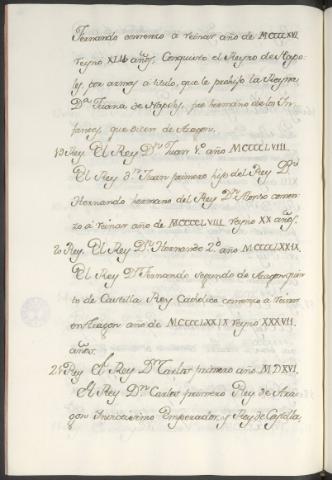 Fernando comenzo a reinar año de MCCCCXVI
reyno XLII años. Conquisto el Reyno de Napo-
les, por armas à titulo, que le prohijo la Reyna
Dª Juana de Napoles, fue hermano de los In-
fantes, que dicen de Aragon.
19 Rey. El Rey Dn Juan 2º año MCCCCLVIII.
El Rey Dn Juan primero hijo del Rey Dn
Hernando hermano del Rey Dn Alonso comen
zo à reinar año de MCCCCLVIII reyno XX años.
20 Rey. El Rey Dn Hernando 2º año MCCCCLXXIX
El Rey Dn Fernando segundo de Aragon quin
to de Castilla Rey Catolico comenzo à reinar
en Aragon año de MCCCCLXXIX reyno XXXVII
años.
21 Rey El Rey Dn Carlos primero año MDXVI.
El Rey Dn Carlos primero Rey de Ara-
gon Invictissimo Emperador, y Rey de Castilla,